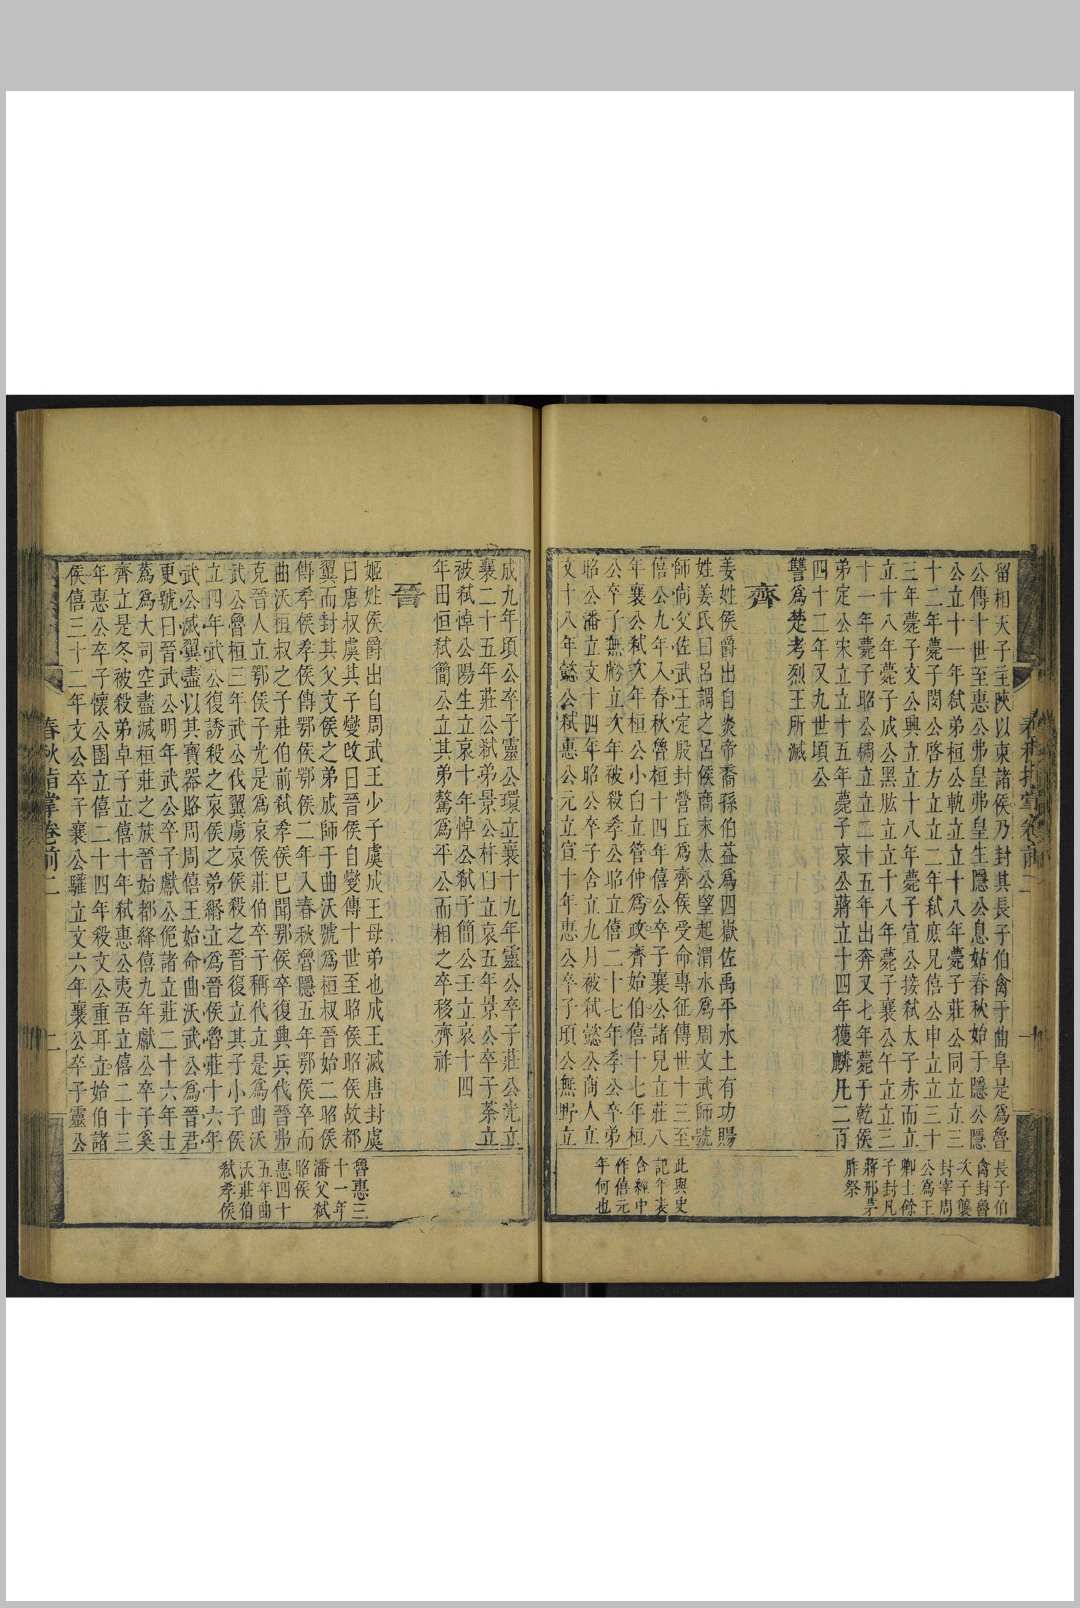 留相天子主陝以東諸侯乃封其長子伯禽于曲阜是爲魯
公傳十世至惠公弗皇弗皇生隱公息姑春秋始于隱公隱
公立十一年弒弟桓公軌立立十八年薨子莊公同立立三
十二年薨子閔公啓方立立二年弒庶兄僖公申立立三十
三年薨子文公興立立十八年薨子宣公接弒太子赤而立
立十八年薨子成公黑肱立立十八年薨子襄公午立立三
十一年薨子昭公稠立立二十五年出奔又七年薨于乾侯
弟定公宋立立十五年薨子哀公蔣立十四年獲麟凡二百
四十二年又九世頃公
讐爲楚考烈王所滅
長子伯
禽封魯
次子襲
封宰周
公爲王
卿士餘
子封凡
蔣邢茅
胙祭
齊
姜姓侯爵出自炎帝裔孫伯益爲四嶽佐禹平水土有功賜
姓姜氏曰呂謂之呂侯商末太公望起渭水爲周文武師號
師尚父佐武王定殷封營丘爲齊侯受命專征傳世十三至
僖公九年入春秋魯桓十四年僖公卒子襄公諸兒立莊八
年襄公弒次年桓公小白立管仲爲政齊始伯僖十七年桓
公卒子無虧立次年被殺孝公昭立僖二十七年孝公卒弟
昭公潘立文十四年昭公卒子舍立九月被弒懿公商人立
文十八年懿公弒惠公元立宣十年惠公卒子頃公無野立
此與史
記年表
合經中
作僖元
年何也
成九年頃公卒子靈公環立襄十九年靈公卒子莊公光立
襄二十五年莊公弒弟景公杵臼立哀五年景公卒子荼立
被弒悼公陽生立哀十年悼公弒子簡公壬立哀十四
年田恒弒簡公立其弟驁爲平公而相之卒移齊祚
晉
姬姓侯爵出自周武王少子虞成王母弟也成王滅唐封虞
曰唐叔虞其子燮改曰晉侯自燮傳十世至昭侯昭侯故都
翼而封其父文侯之弟成師于曲沃號爲桓叔晉始二昭侯
傳孝侯孝侯傳鄂侯鄂侯二年入春秋魯隱五年鄂侯卒而
曲沃桓叔之子莊伯前弒孝侯巳聞鄂侯卒復興兵伐晉弗
克晉人立鄂侯子光是爲哀侯莊伯卒子稱代立是爲曲沃
武公魯桓三年武公伐翼虜哀侯殺之晉復立其子小子侯
立四年武公復誘殺之哀侯之弟緡立爲晉侯魯莊十六年
武公滅翼盡以其寶器賂周周僖王始命曲沃武公爲晉君
更號曰晉武公明年武公卒子獻公佹諸立莊二十六年士
蔿爲大司空盡滅桓莊之族晉始都絳僖九年獻公卒子奚
齊立是冬被殺弟卓子立僖十年弒惠公夷吾立僖二十三
年惠公卒子懷公圉立僖二十四年殺文公重耳立始伯諸
侯僖三十二年文公卒子襄公驩立文六年襄公卒子靈公
魯惠三
十一年
潘父弒
昭侯
惠四十
五年曲
沃莊伯
弒孝侯
春秋指掌卷前二
二